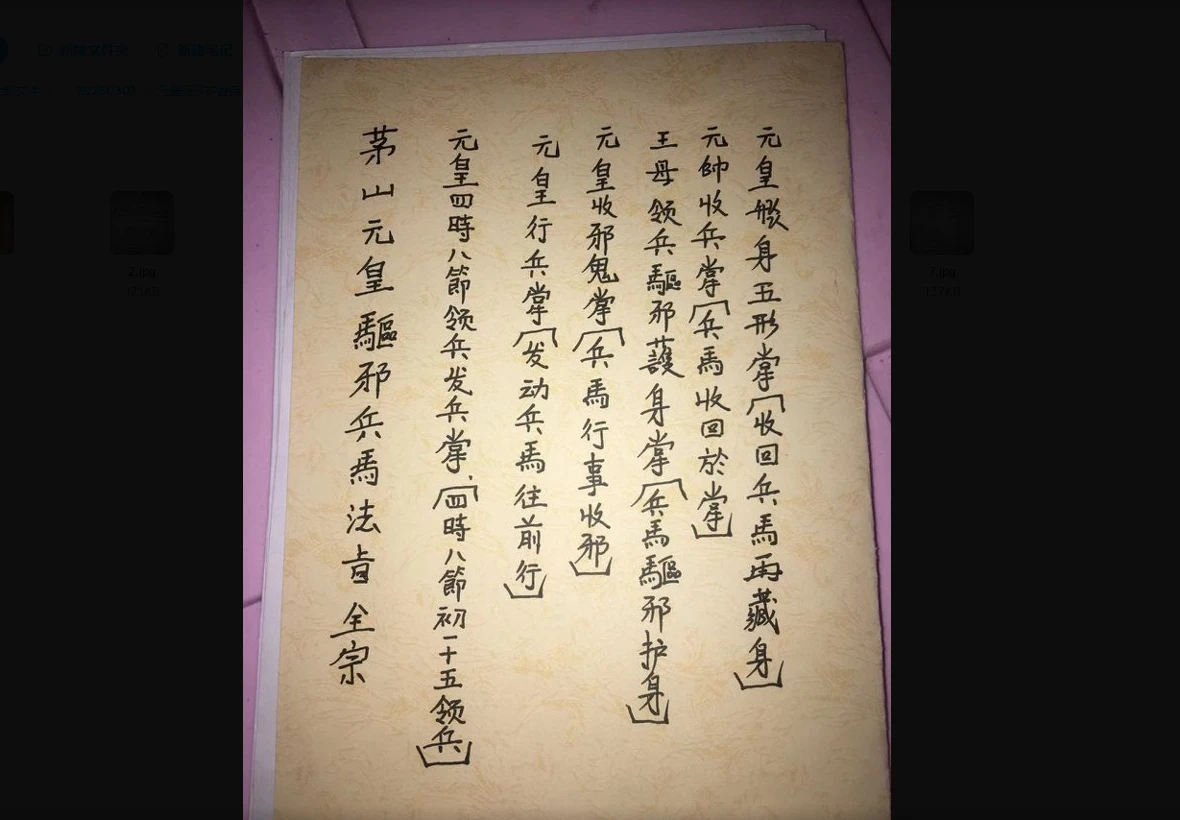 元皇艈身五形掌（收回兵馬再藏身）
元帥收兵掌（兵馬收回於掌）
王母领兵驅邪護身掌（兵馬驅邪护身）
元皇收邪鬼掌（兵馬行事收邪）
元皇行兵掌（发动兵馬往前行）
元皇四時八節领兵发兵掌，（四時八節初一十五领兵）
茅山元皇驅邪兵馬法旨全宗
2.jpg
7.jpg